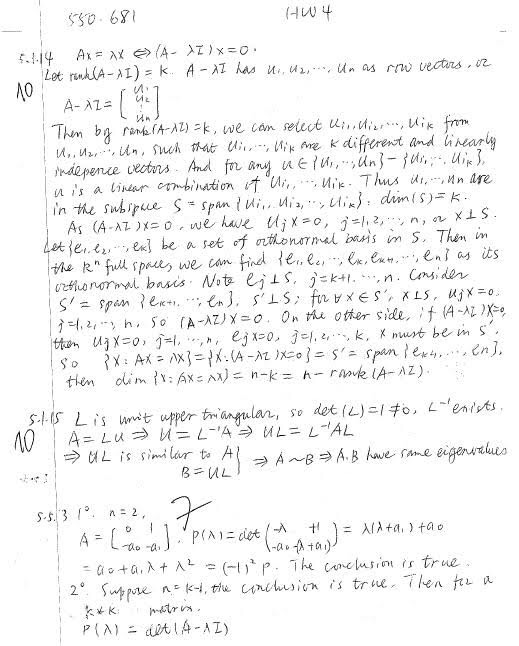 550.681 HW4
5.1.14 Ax = λx ⇔ (A - λI)x = 0.
Let rank(A-λI) = k. A-λI has u₁, u₂, ..., uₙ as row vectors, or
10 A-λI = [u₁ u₂ ⋮ uₙ]
Then by rank(A-λI) = k, we can select uᵢ₁, uᵢ₂, ..., uᵢₖ from
u₁, u₂, ..., uₙ, such that uᵢ₁, ..., uᵢₖ are k different and linearly
indepence vectors. And for any u ∈ {u₁, ..., uₙ} - {uᵢ₁, ..., uᵢₖ},
u is a linear combination of uᵢ₁, ..., uᵢₖ. Thus u₁, ..., uₙ are
in the subspace S = span{uᵢ₁, uᵢ₂, ..., uᵢₖ}. dim(S) = k.
As (A-λI)x = 0, we have uⱼx = 0, j=1,2,...,n, or x⊥S.
Let {e₁, e₂, ..., eₖ} be a set of orthonormal basis in S. Then in
the Rⁿ full space, we can find {e₁, e₂, ..., eₖ, eₖ₊₁, ..., eₙ} as its
orthonormal basis. Note eⱼ⊥S, j=k+1, ..., n. Consider
S' = span{eₖ₊₁, ..., eₙ}, S'⊥S; for ∀x∈S', x⊥S, uⱼx=0,
j=1,2,...,n, so (A-λI)x=0. On the other side, if (A-λI)x=0,
then uⱼx=0, j=1,...,n, eⱼx=0, j=1,2,...,k, x must be in S'.
So {x: Ax = λx} = {x: (A-λI)x=0} = S' = span{eₖ₊₁, ..., eₙ},
then dim{x: Ax = λx} = n-k = n - rank(A-λI).
5.1.15 L is unit upper triangular, so det(L) = 1 ≠ 0, L⁻¹ exists.
10 A = LU ⇒ U = L⁻¹A ⇒ UL = L⁻¹AL
⇒ UL is similar to A } ⇒ A~B ⇒ A,B have same eigenvalues
B = UL
5.5.3 1°. n=2, 7
A = [0 1; -a₀ -a₁]. P(λ) = det(-λ +1; -a₀ -(λ+a₁)) = λ(λ+a₁)+a₀
= a₀+a₁λ+λ² = (-1)²p. The conclusion is true.
2° Suppose n=k-1, the conclusion is true. Then for a
k*k matrix.
P(λ) = det(A-λI)